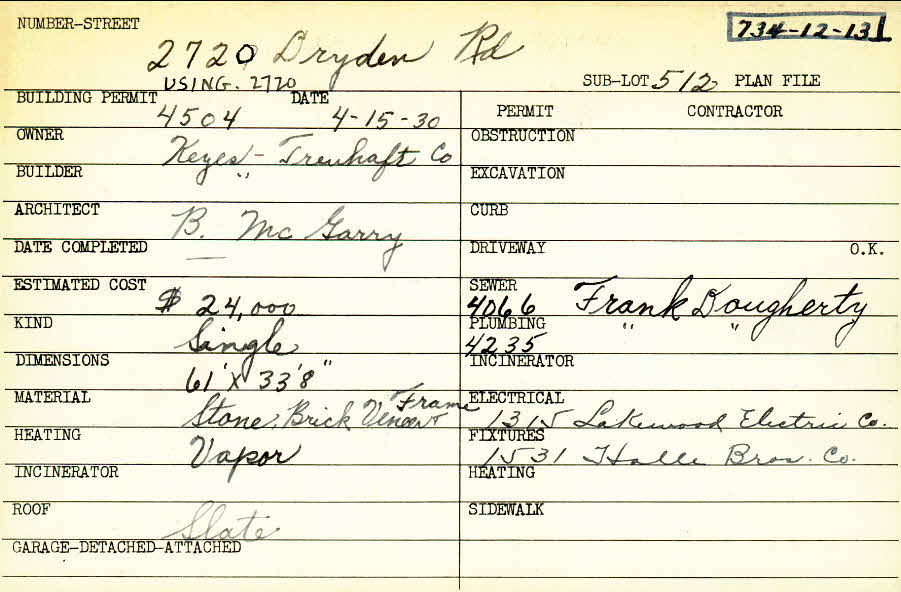 NUMBER-STREET
734-12-13
2720 Dryden Rd
USING. 2720
SUB-LOT 512 PLAN FILE
BUILDING PERMIT 4504 DATE 4-15-30
PERMIT CONTRACTOR
OWNER Keyes-Treuhaft Co
OBSTRUCTION
BUILDER "
EXCAVATION
ARCHITECT B. McGarry
CURB
DATE COMPLETED —
DRIVEWAY O.K.
ESTIMATED COST $ 24,000
SEWER 4066 Frank Dougherty
KIND Single
PLUMBING 4235 " "
DIMENSIONS 61' X 33'8"
INCINERATOR
MATERIAL Stone, Brick Veneer Frame
ELECTRICAL 1315 Lakewood Electric Co.
HEATING Vapor
FIXTURES 1531 Halle Bros. Co.
INCINERATOR
HEATING
ROOF Slate
SIDEWALK
GARAGE-DETACHED-ATTACHED